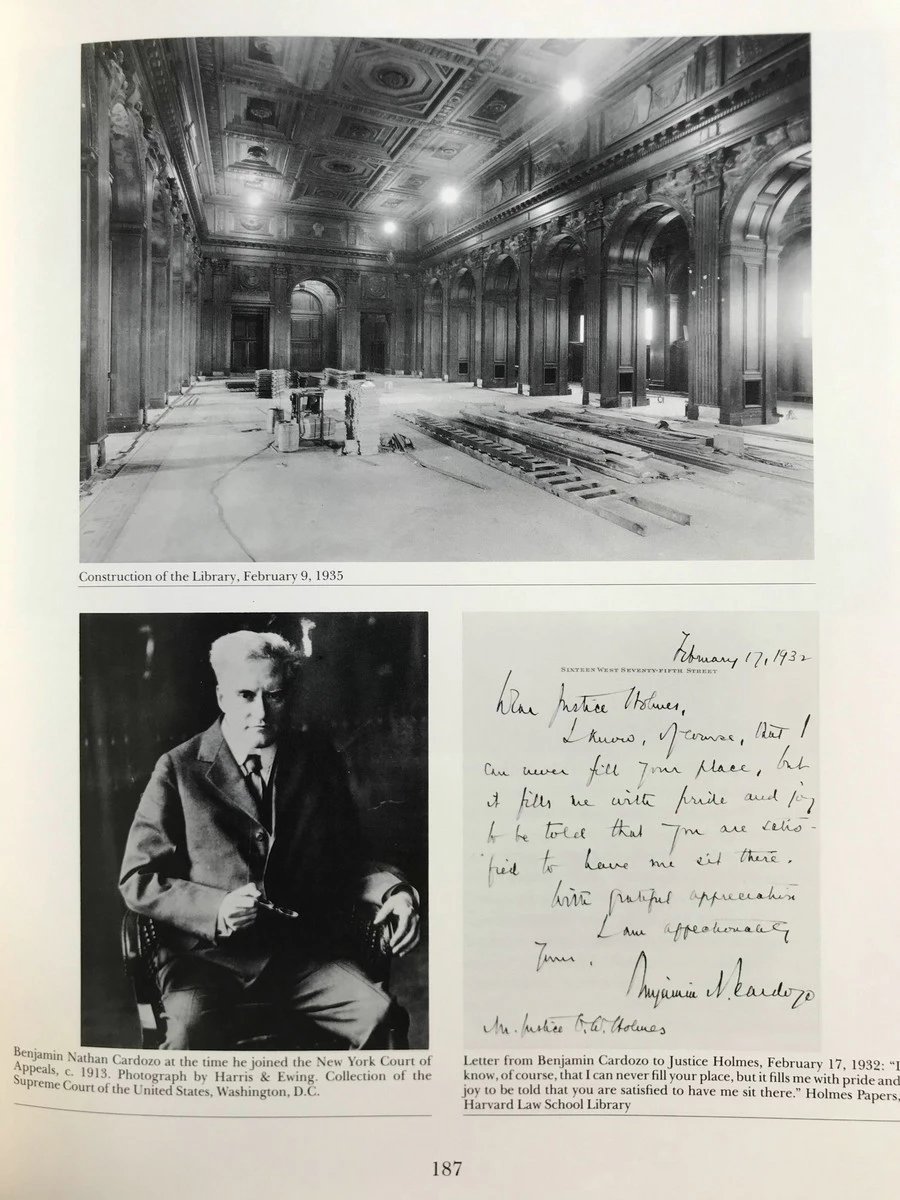 Construction of the Library, February 9, 1935
February 17, 1932
SIXTEEN WEST SEVENTY-FIFTH STREET
Dear Justice Holmes,
I know, of course, that I
can never fill your place, but
it fills me with pride and joy
to be told that you are satis-
fied to have me sit there.
With grateful appreciation
I am affectionately
Yours,
Benjamin N. Cardozo
Mr. Justice O. W. Holmes
Benjamin Nathan Cardozo at the time he joined the New York Court of
Appeals, c. 1913. Photograph by Harris & Ewing. Collection of the
Supreme Court of the United States, Washington, D.C.
Letter from Benjamin Cardozo to Justice Holmes, February 17, 1932: “I
know, of course, that I can never fill your place, but it fills me with pride and
joy to be told that you are satisfied to have me sit there.” Holmes Papers,
Harvard Law School Library
187